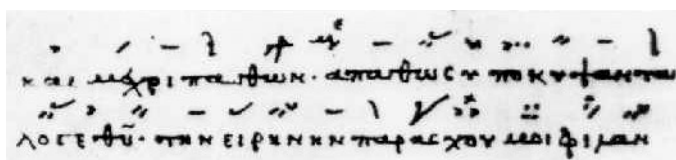 και μεχρι παθων · απαθως υποκυψαντα
λογε θυ̃ · την ειρηνην παρασχου μοι φιλαν